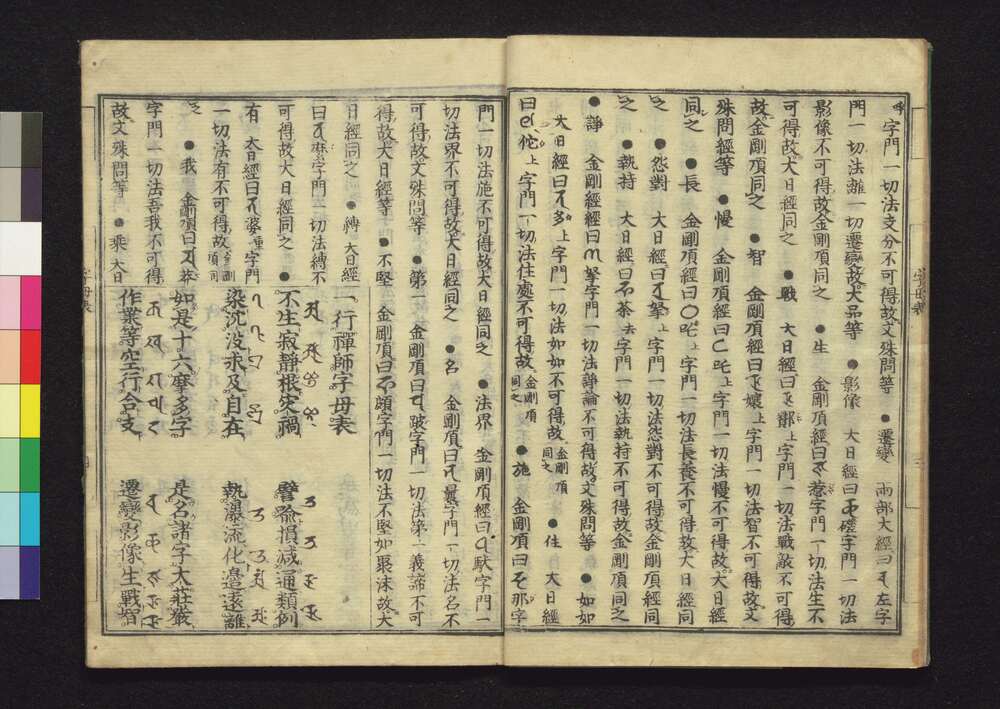 字門一切法支分不可得故文殊問等 ●遷變 兩部大經曰 左字
門一切法離一切遷變故大品等 ●影像 大日經曰 磋字門一切法
影像不可得故金剛頂同之 ●生 金剛頂經曰 惹字門一切法生不
可得故大日經同之 ●戰 大日經曰 鄼上字門一切法戰敵不可得
故金剛頂同之 ●智 金剛頂經曰 孃上字門一切法智不可得故文
殊問經等 ●慢 金剛頂經曰 吒上字門一切法慢不可得故大日經
同之 ●長 金剛頂經曰 咤上字門一切法長養不可得故大日經同
之 ●怨對 大日經曰 拏上字門一切法怨對不可得故金剛頂經同
之 ●執持 大日經曰 荼去字門一切法執持不可得故金剛頂同之
●諍 金剛經經曰 拏字門一切法諍論不可得故文殊問等 ●如如
大日經曰 多上字門一切法如如不可得故金剛頂同之 ●住 大日經
曰 佗上字門一切法住處不可得故金剛頂同之 ●施 金剛頂曰 那字
門一切法施不可得故大日經同之 ●法界 金剛頂經曰 馱字門一
切法界不可得故大日經同之 ●名 金剛頂曰 曩字門一切法名不
可得故文殊問等 ●第一 金剛頂曰 跛字門一切法第一義諦不可
得故大日經等 ●不堅 金剛頂曰 頗字門一切法不堅如聚沫故大
日經同之 ●縛 大日經
曰 麼字門一切法縛不
可得故大日經同之 ●
有 大日經曰 婆重字門
一切法有不可得故金剛頂同
之 ●我 金剛頂曰 莽
字門一切法吾我不可得
故文殊問等 ●乘 大日
一行禪師字母表
不生寂靜根災禍 譬喻損減通類例
染沈沒求及自在 執瀑流化邊遠離
如是十六摩多字 是名諸字大莊嚴
作業等空行合支 遷變影像生戰智
字母表